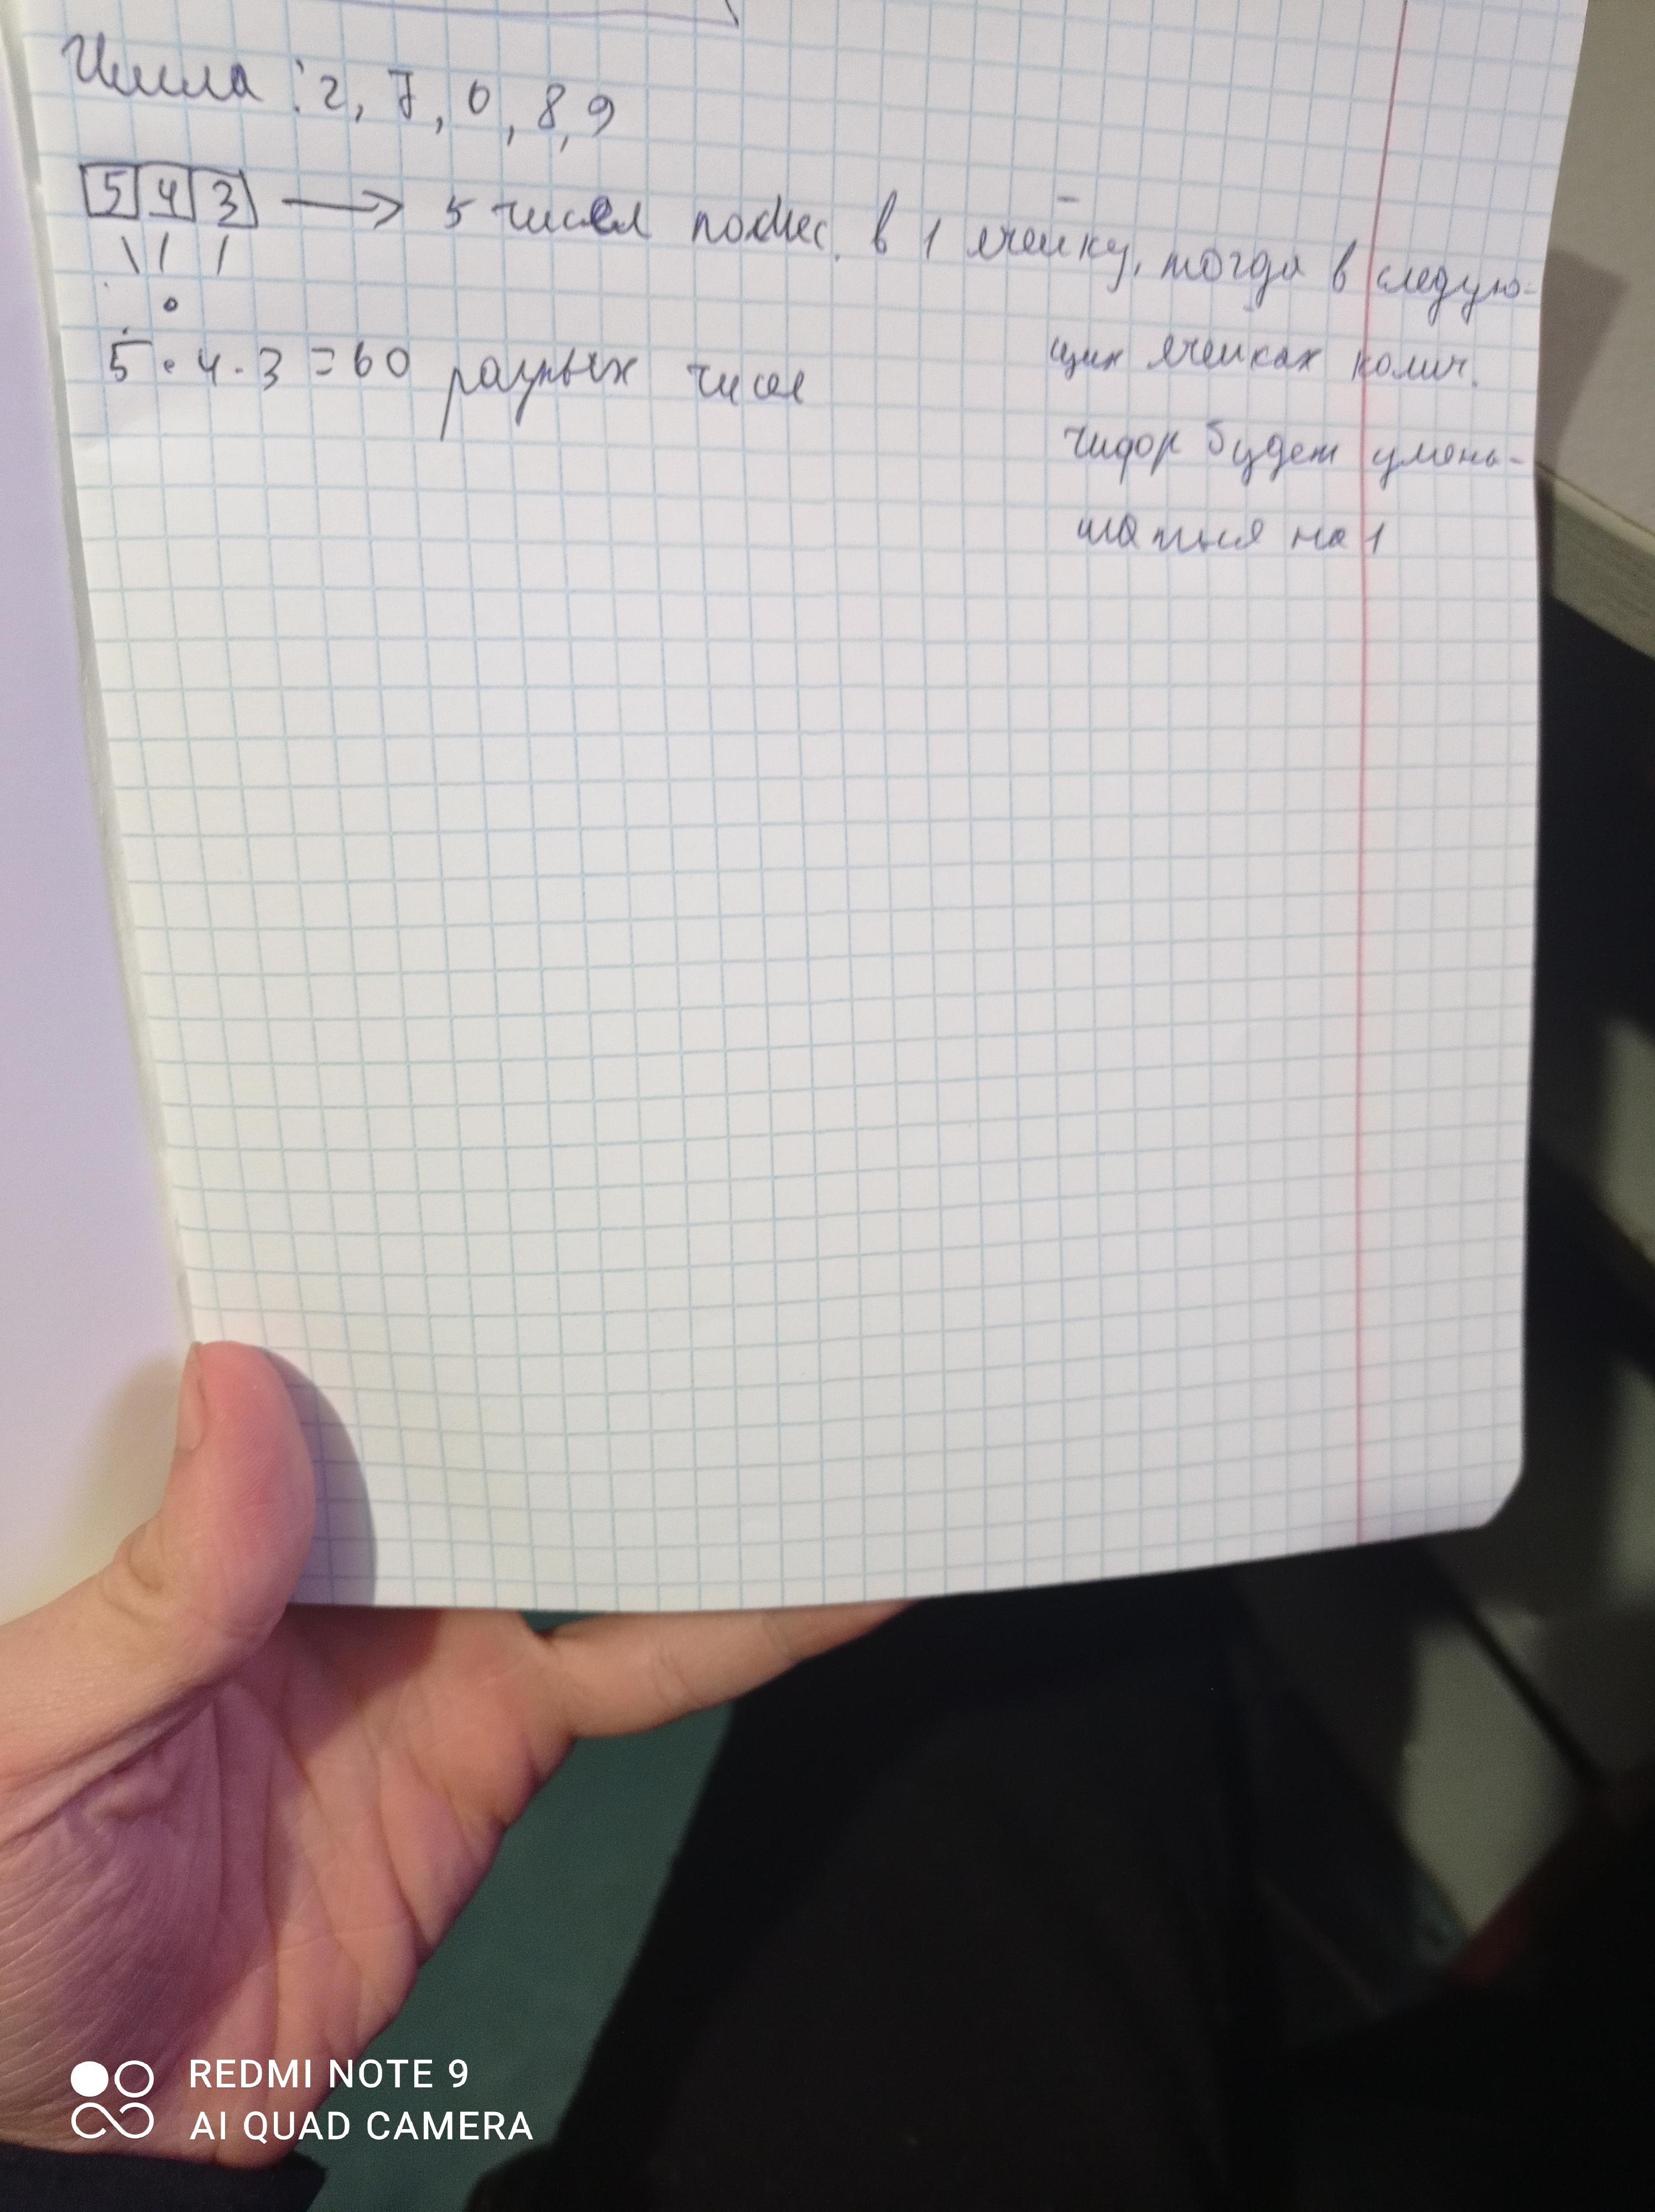 Числа : 2, 7, 0, 8, 9
5 4 3 → 5 чисел помес. в 1 ячейку, тогда в следую-
щих ячейках колич.
цифр будет умень-
шаться на 1
5 · 4 · 3 = 60 разных чисел
REDMI NOTE 9
AI QUAD CAMERA